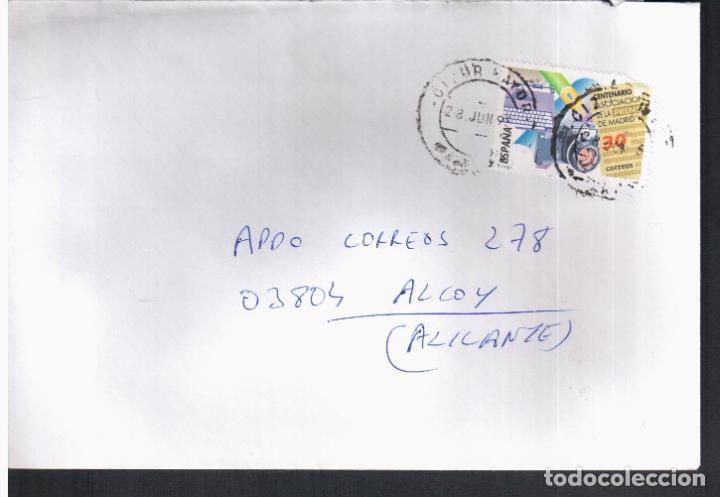 CIZUR MAYOR
28. JUN 9
ESPAÑA
CENTENARIO
ASOCIACION
DE LA PRENSA
DE MADRID
30
CORREOS
APDO CORREOS 278
03804 ALCOY
(ALICANTE)
todocoleccion